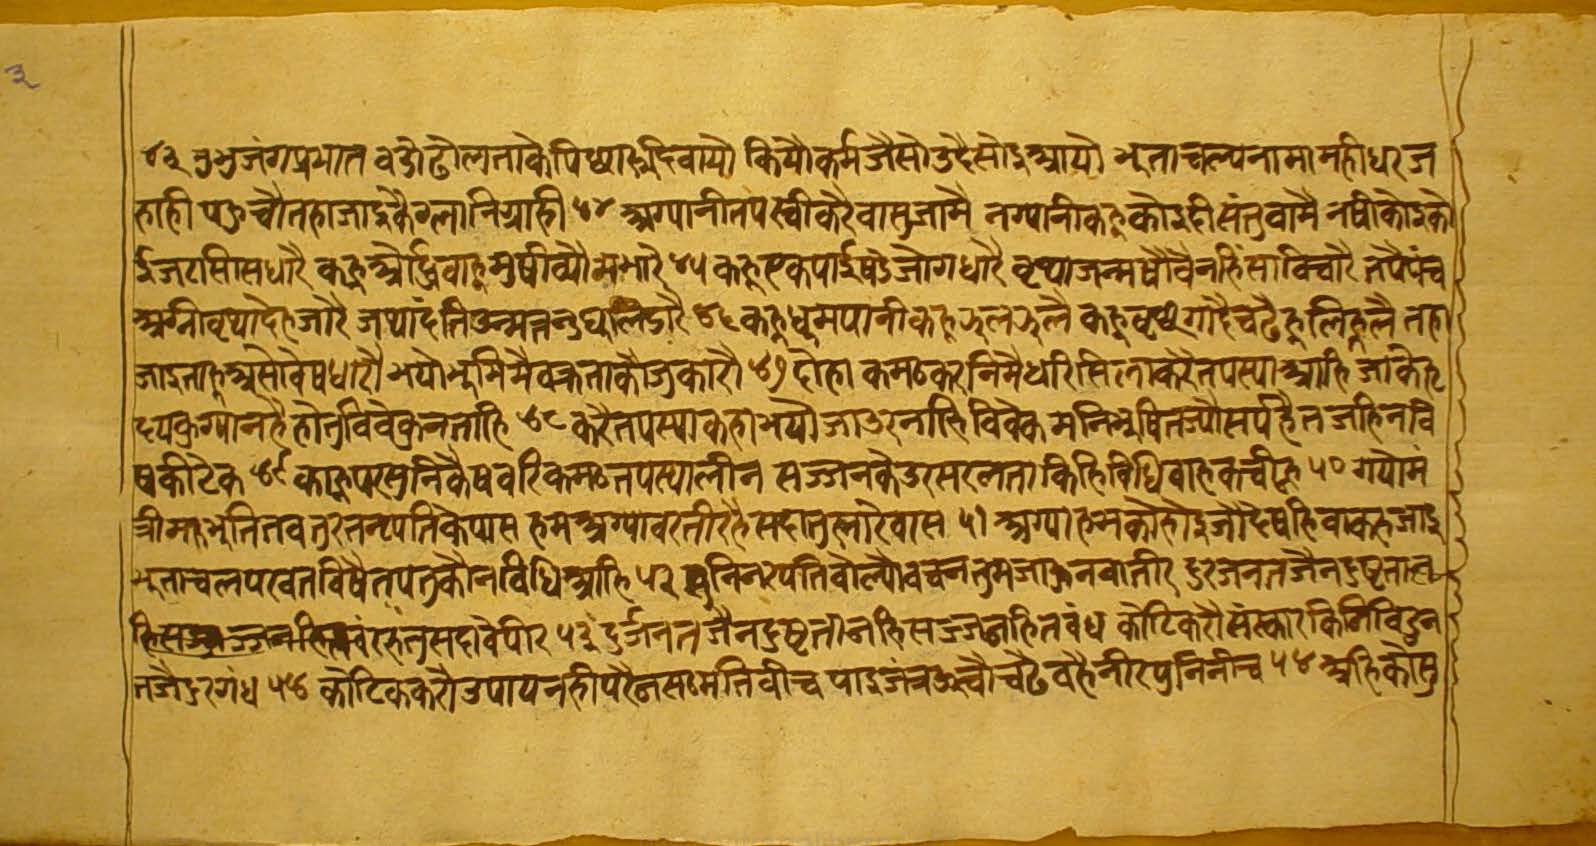 ३
४३ भुजंगप्रयात वडो ढौलनाकै पिष्या हृदिवायौ कियौ कर्म जैसो उदै सोइ आयौ भुताचल्य नामा महीधर ज
हाही पऊचौ तहा जाइकै ग्लानि ग्राही ४४ अग्यानी तपस्वी करै वासु जामै नग्यानी कहू कोइ ही संतु वामै नषी कोइ को
ई जटा सीस धारै कहू औध्रिवाहू मुषी व्यौम भारै ४५ कहू एक पाई षडे जोग धारै वृथा जन्म षौवै नहिं सा विचारै तपै पंच
अग्नी वृथा देह जारै जथा दंति उन्मत्त नु घुलि डारै ४६ कहू धुमपानी कहू झुल झुलै कहू वृष्य गाढै चढै हुलि हूलै तहा
जाइ ताहू असौ वेष धारौ भयो भुमिमै वक्रता कौ जु कारौ ४७ दोहा कमठ करनिमै धारि सिला करै तपस्या आहि जाके हृ
दय कुग्यान है होतु विवेकु न ताहि ४८ करै तपस्या कहा भयौ जा उर नाहि विवेक मनि भुषित ज्यौ सर्प है तजहि न वि
ष की टेक ४९ काहू पर सुनिकै षवरि कमठ तपस्या लीन सज्जनकै उर सरलता किहि विधि वाह कवीह ५० गयो मं
त्री मरुभुति तव तुरत नृपतिकै पास हम अग्या वर तीर है सदा तुह्मारै वास ५१ अग्या हमकौ होइ जौ देषहि वाकह जाइ
भुताचल परवत विषै तपतु कौन विधि आहि ५२ सुनि नरपति वोल्यौ वचन तुम जाऊ न वा तीर दुरजन तजै न दुष्टता
सदा वेपीर ५३ दुर्जन तजै न दुष्टता नहि सज्जन हित वंध कोटि करौ संस्कार किनि विदुन
तजै दुरगंध ५४ कोटिक करौ उपाय नही परै न सठ मति वीच पाइ जंत्र ऊचौ चढै वहै नीर पुनि नीच ५४ अहि कौ सु